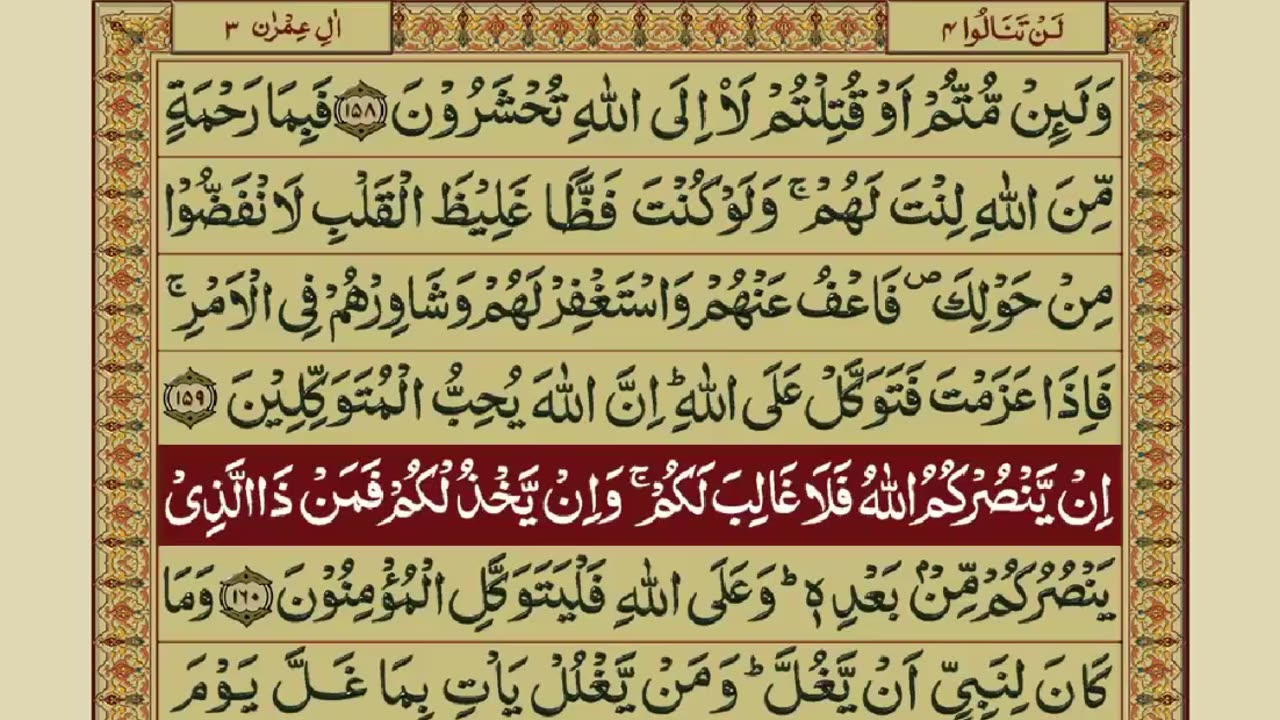 لَنْ تَنَالُوا ۴
اٰلِ عِمْرٰن ۳
وَلَئِنْ مُّتُّمْ اَوْ قُتِلْتُمْ لَاۡ اِلَى اللّٰهِ تُحْشَرُوْنَ ﴿۱۵۸﴾ فَبِمَا رَحْمَةٍ
مِّنَ اللّٰهِ لِنْتَ لَهُمْ ۚ وَلَوْ كُنْتَ فَظًّا غَلِيْظَ الْقَلْبِ لَا نْفَضُّوْا
مِنْ حَوْلِكَ ۖ فَاعْفُ عَنْهُمْ وَاسْتَغْفِرْ لَهُمْ وَشَاوِرْهُمْ فِى الْاَمْرِ ۚ
فَاِذَا عَزَمْتَ فَتَوَكَّلْ عَلَى اللّٰهِ ؕ اِنَّ اللّٰهَ يُحِبُّ الْمُتَوَكِّلِيْنَ ﴿۱۵۹﴾
اِنْ يَّنْصُرْكُمُ اللّٰهُ فَلَا غَالِبَ لَكُمْ ۚ وَاِنْ يَّخْذُ لْكُمْ فَمَنْ ذَا الَّذِىْ
يَنْصُرُكُمْ مِّنْۢ بَعْدِهٖ ؕ وَعَلَى اللّٰهِ فَلْيَتَوَكَّلِ الْمُؤْمِنُوْنَ ﴿۱۶۰﴾ وَمَا
كَانَ لِنَبِىٍّ اَنْ يَّغُلَّ ؕ وَمَنْ يَّغْلُلْ يَاْتِ بِمَا غَلَّ يَوْمَ